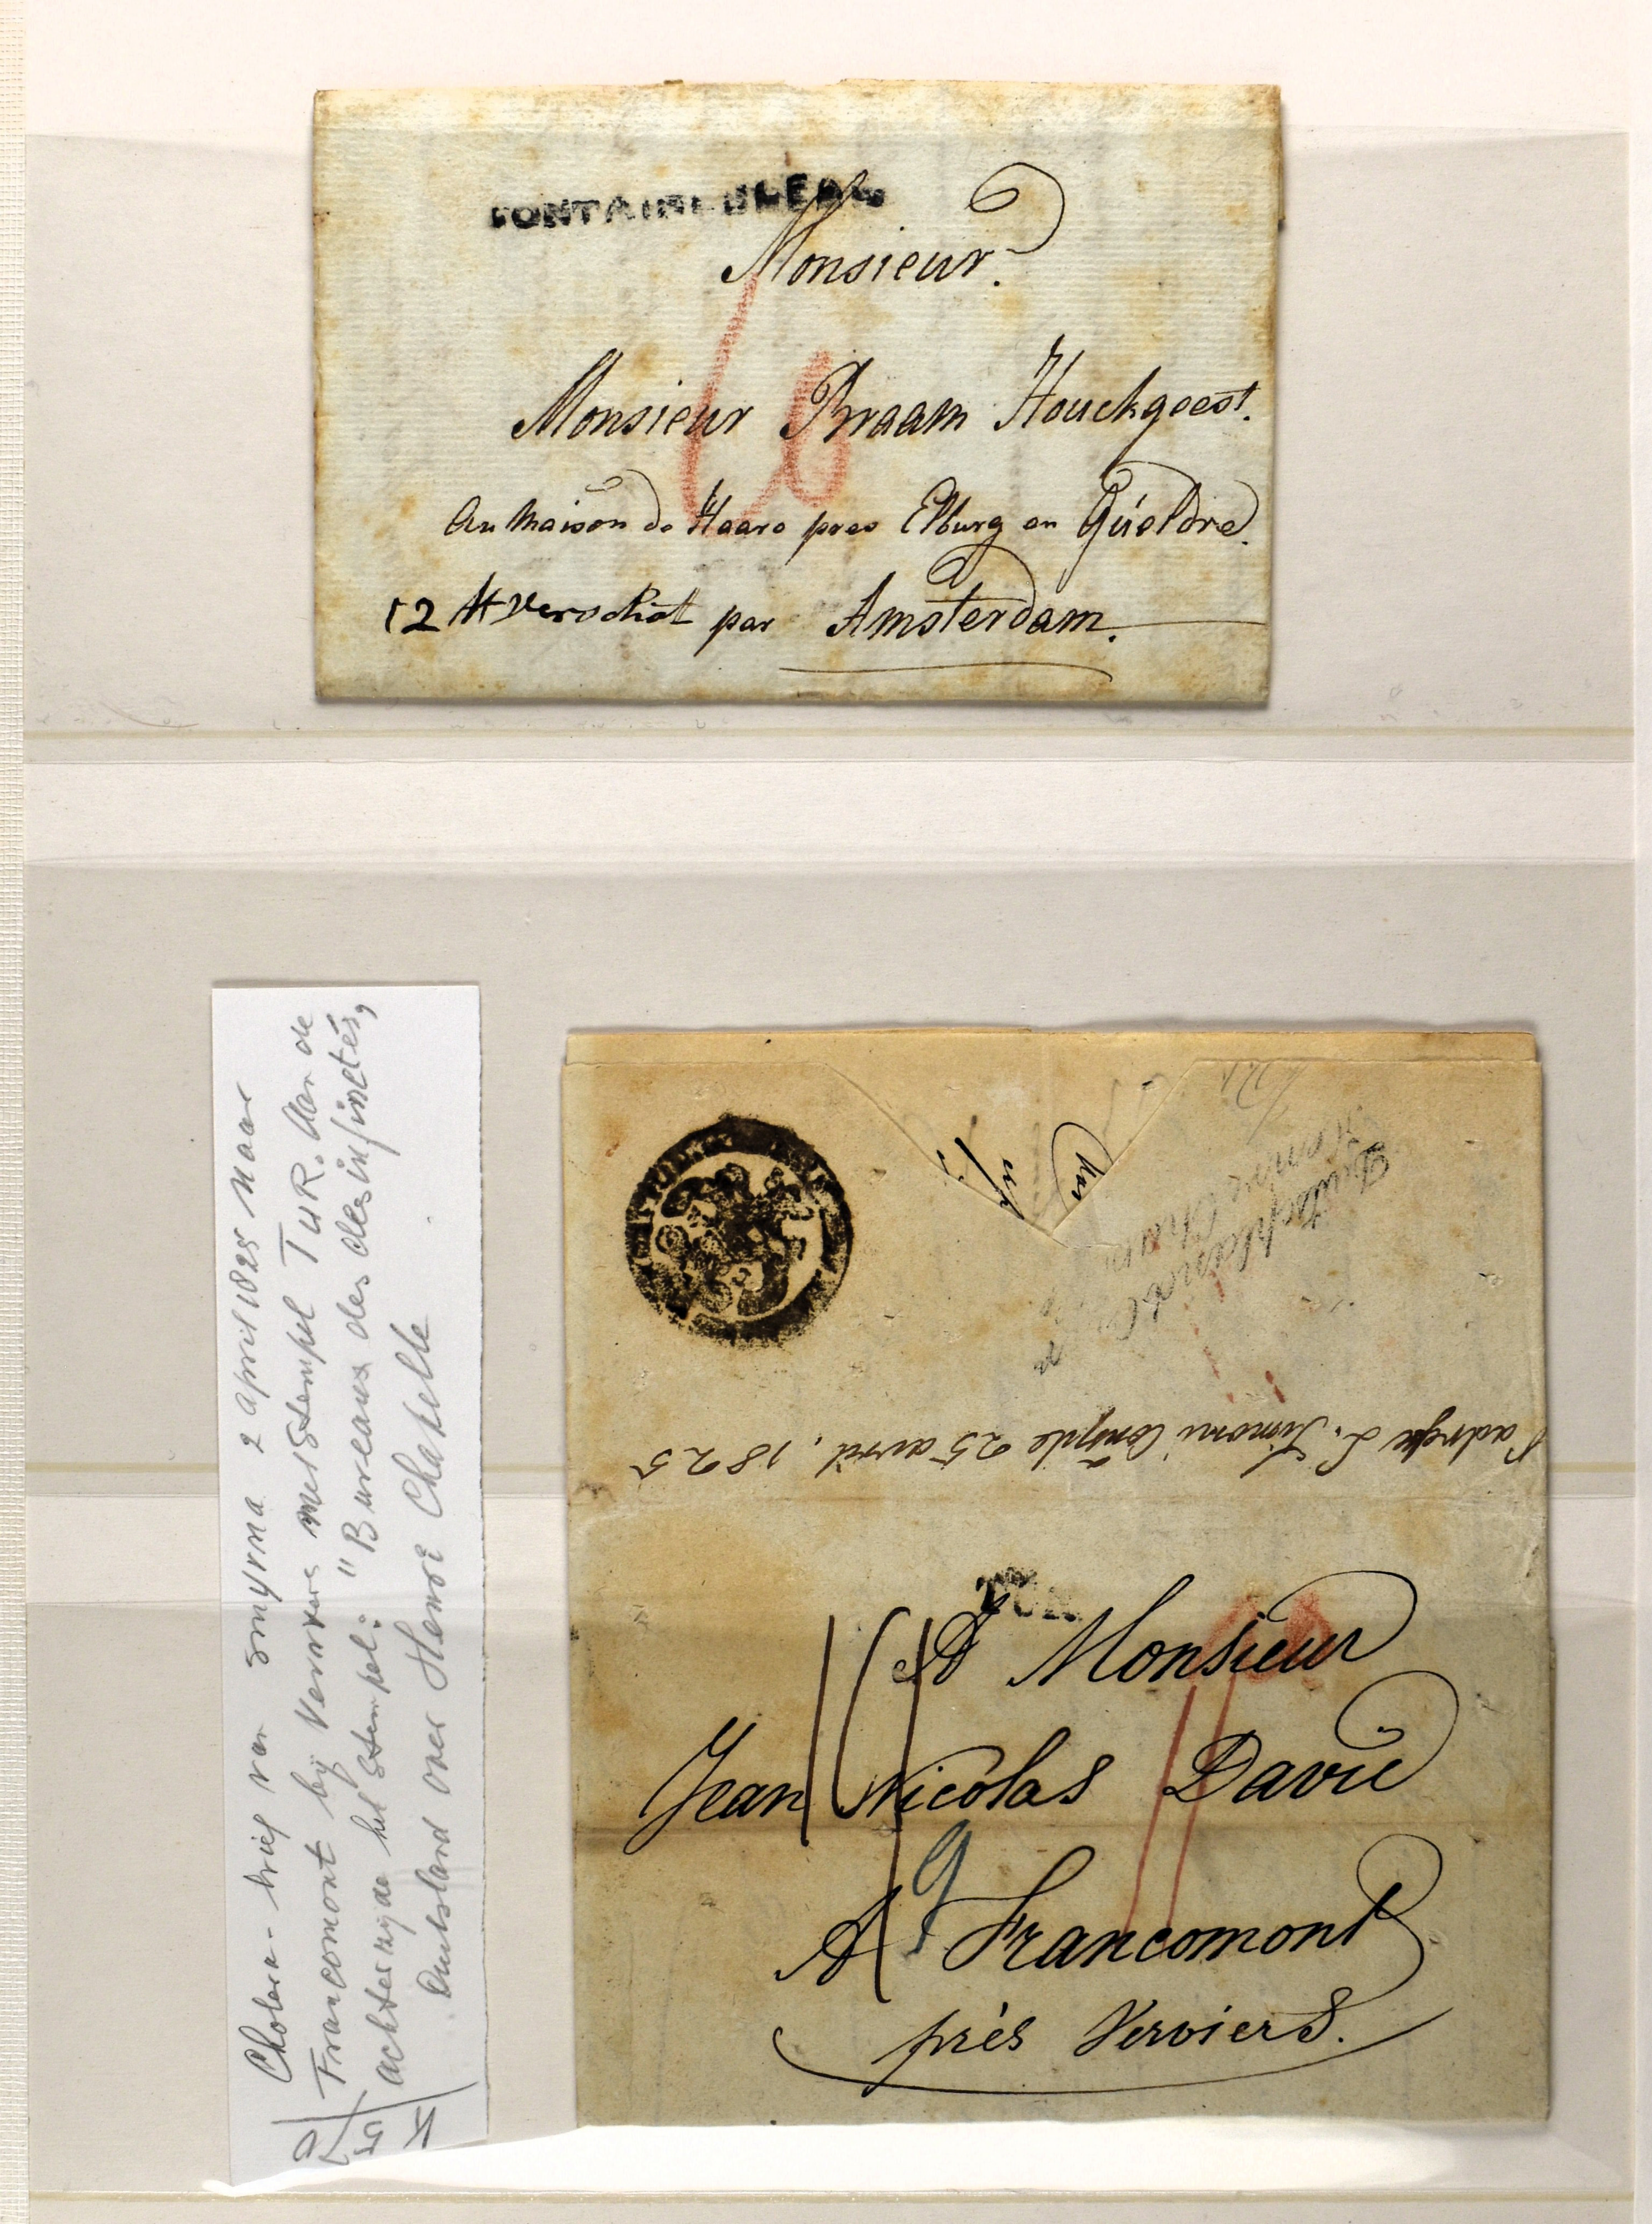 FONTAINEBLEAU
Monsieur.
Monsieur Braam Houckgeest.
au maison de Haare pres Elburg en Gueldre.
12 St verschiet par Amsterdam.
Cholera-brief van Smyrna 2 april 1825 naar
Francomont bij Verviers met stempel TUR. Aan de
achterzijde het stempel: "Bureaux des desinfectés,
Duitsland over Henri Chapelle
Duitschland
Henri Chapelle
L. Simoni Conple 25 avril. 1825
TUR.
A Monsieur
Jean Nicolas David
9
A Francomont
près Verviers.